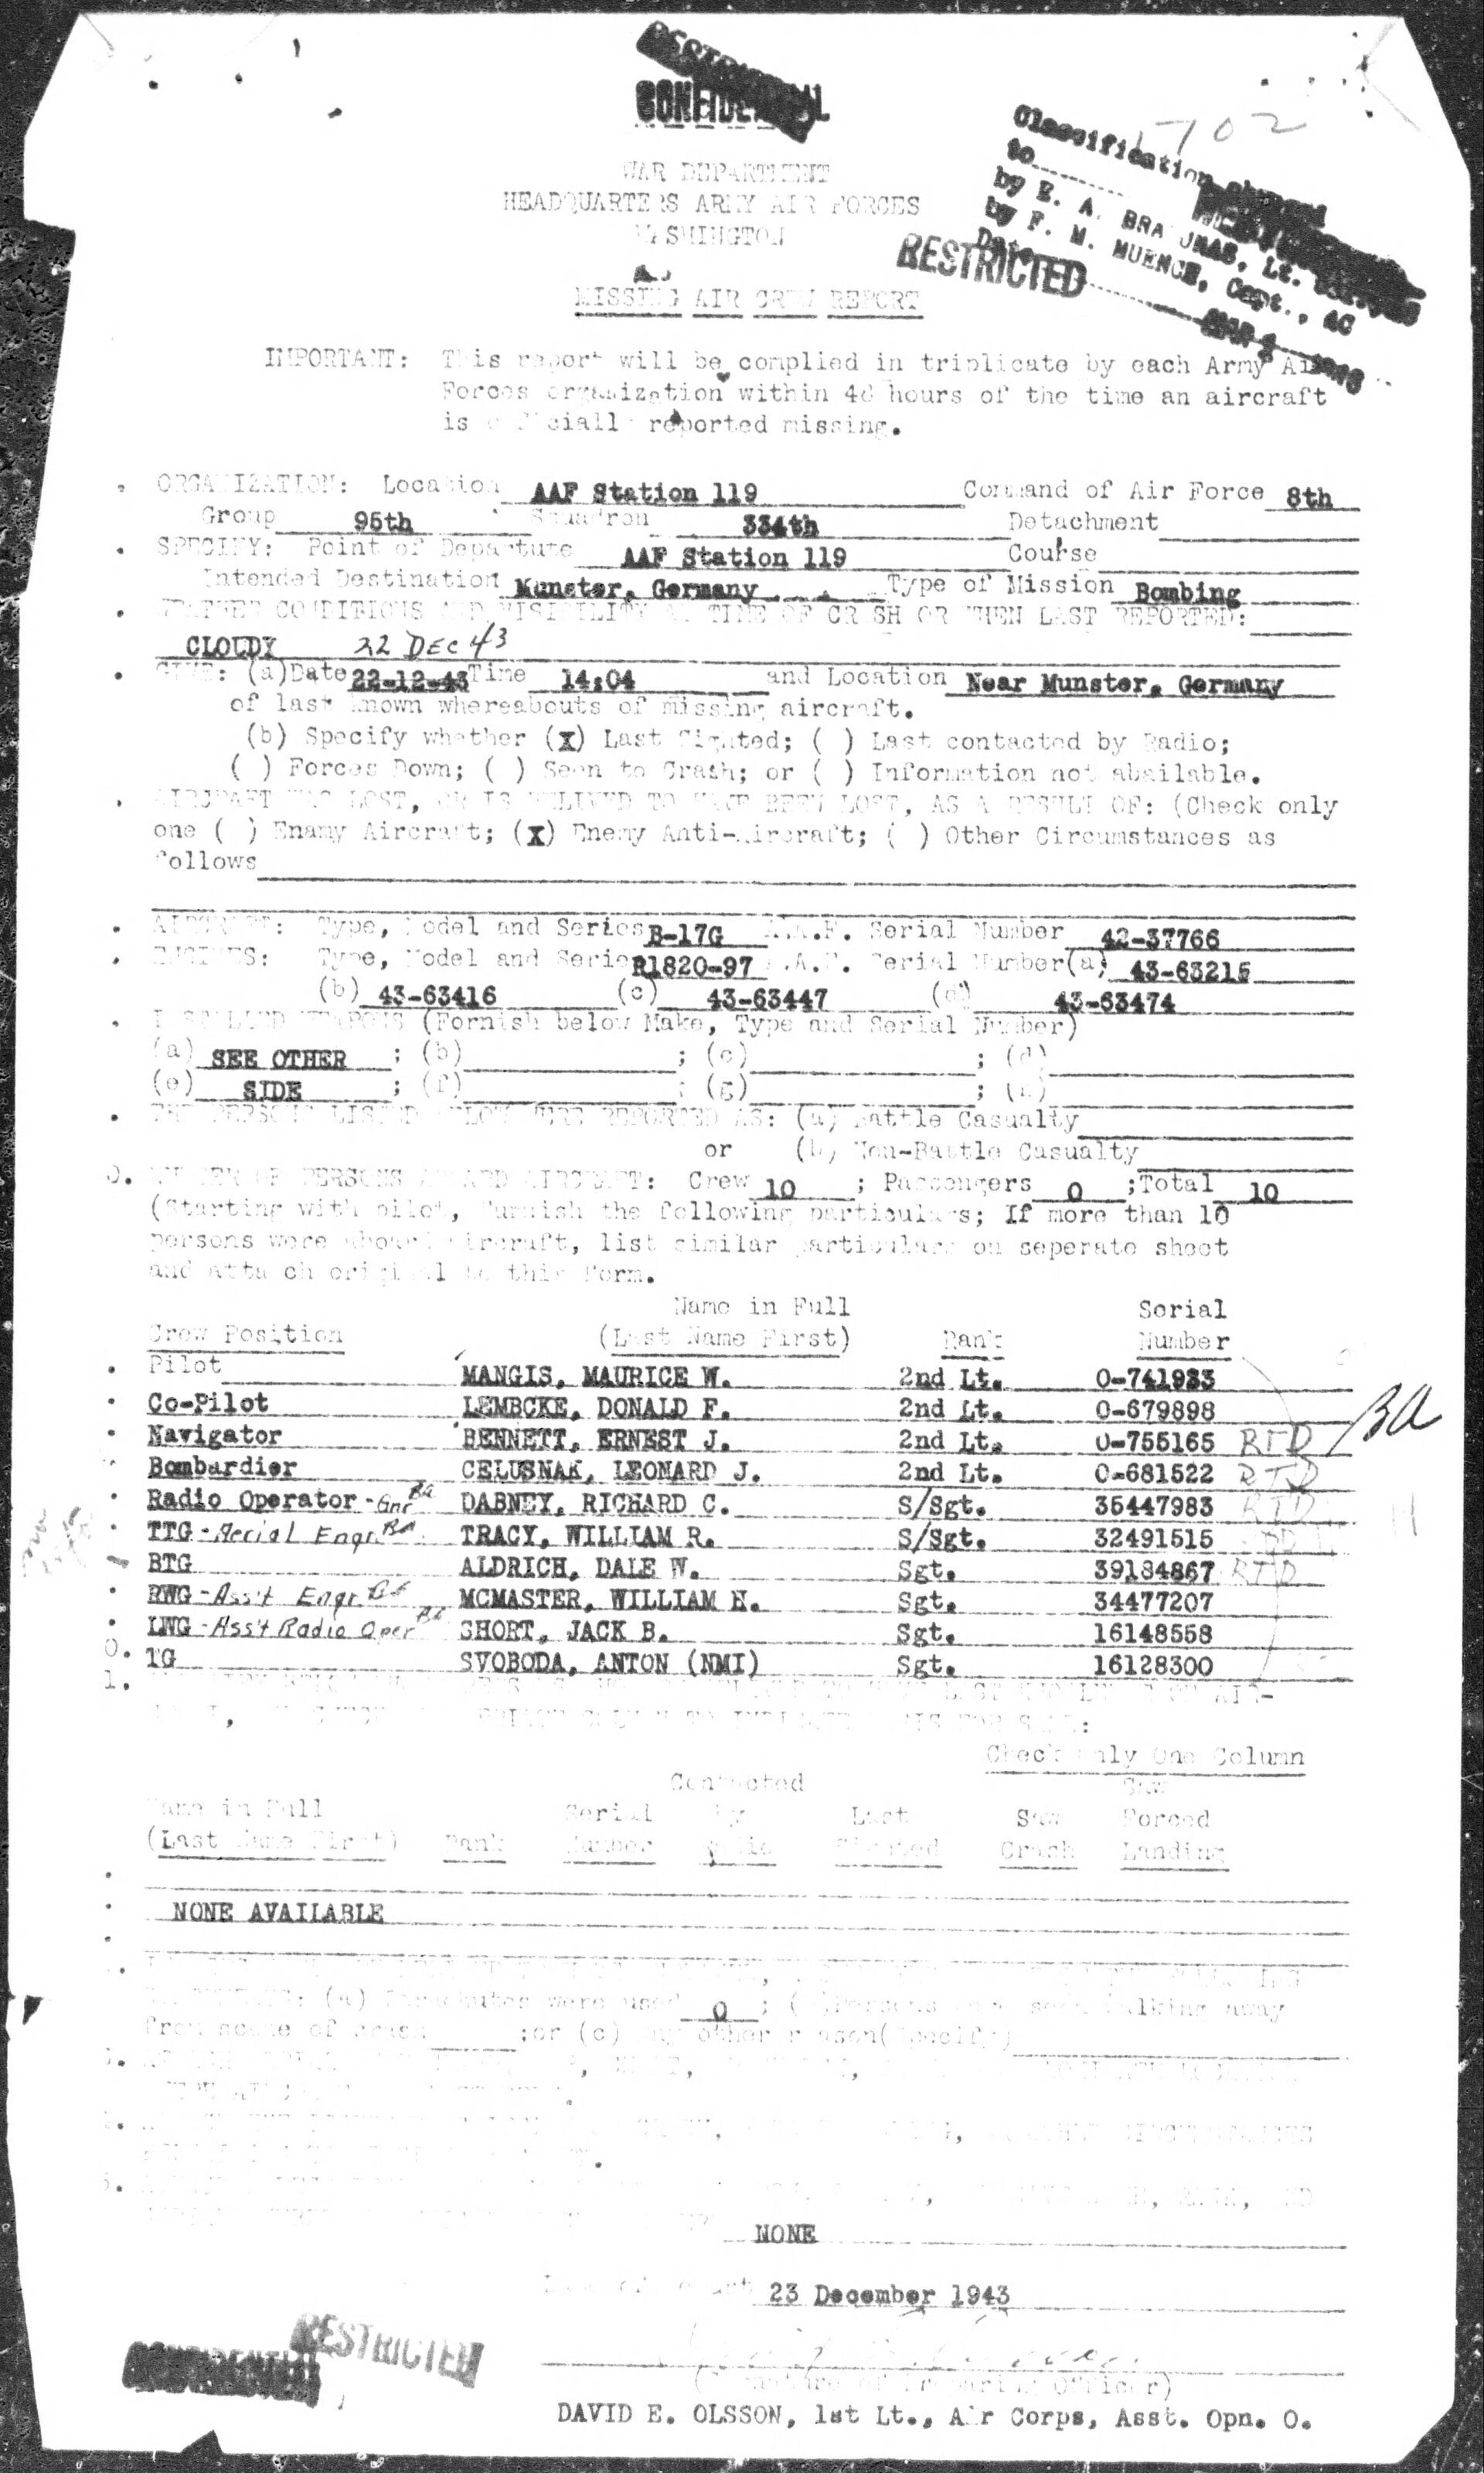 RESTRICTED
CONFIDENTIAL
1702
Classification changed
to
by E. A. BRAUNAS, Lt.
by F. M. MUENCH, Capt., AC
Date
RESTRICTED
WAR DEPARTMENT
HEADQUARTERS ARMY AIR FORCES
WASHINGTON
MISSING AIR CREW REPORT
IMPORTANT: This report will be complied in triplicate by each Army Air
Forces organization within 48 hours of the time an aircraft
is officially reported missing.
ORGANIZATION: Location AAF Station 119 Command of Air Force 8th
Group 95th Squadron 334th Detachment
SPECIFY: Point of Departute AAF Station 119 Course
Intended Destination Munster, Germany Type of Mission Bombing
WEATHER CONDITIONS AND VISIBILITY AT TIME OF CRASH OR WHEN LAST REPORTED:
CLOUDY 22 DEC 43
GIVE: (a)Date 22-12-43 Time 14:04 and Location Near Munster, Germany
of last known whereabouts of missing aircraft.
(b) Specify whether (X) Last Sighted; ( ) Last contacted by Radio;
( ) Forces Down; ( ) Seen to Crash; or ( ) Information not abailable.
AIRCRAFT WAS LOST, OR IS BELIVED TO HAVE BEEN LOST, AS A RESULT OF: (Check only
one ( ) Enamy Aircraft; (X) Enemy Anti-Aircraft; ( ) Other Circumstances as
follows
AIRCRAFT: Type, Model and Series B-17G A.A.F. Serial Number 42-37766
ENGINES: Type, Model and Series R1820-97 A.A.F. Serial Number(a) 43-63215
(b) 43-63416 (c) 43-63447 (d) 43-63474
INSTALLED WEAPONS (Fornish below Make, Type and Serial Number)
(a) SEE OTHER ; (b) ; (c) ; (d)
(e) SIDE ; (f) ; (g) ; (h)
THE PERSONS LISTED BELOW WERE REPORTED AS: (a) Battle Casualty
or (b) Non-Battle Casualty
0. NUMBER OF PERSONS ABOARD AIRCRAFT: Crew 10 ; Passengers 0 ;Total 10
(Starting with pilot, furnish the following particulars; If more than 10
persons were aboard aircraft, list similar particulars on seperate sheet
and atta ch original to this form.
Name in Full Serial
Crew Position (Last Name First) Rank Number
Pilot MANGIS, MAURICE W. 2nd Lt. O-741933
Co-Pilot LEMBCKE, DONALD F. 2nd Lt. O-679898 BA
Navigator BENNETT, ERNEST J. 2nd Lt. O-755165 RTD
Bombardier CELUSNAK, LEONARD J. 2nd Lt. O-681522 RTD
Radio Operator - Gnr BA DABNEY, RICHARD C. S/Sgt. 35447983 RTD
TTG - Aerial Engr. BA TRACY, WILLIAM R. S/Sgt. 32491515
BTG ALDRICH, DALE W. Sgt. 39184867 RTD
RWG - Ass't Engr BA MCMASTER, WILLIAM H. Sgt. 34477207
LWG - Ass't Radio Oper BA SHORT, JACK B. Sgt. 16148558
0. TG SVOBODA, ANTON (NMI) Sgt. 16128300
1.
Check Only One Column
Contacted Saw
Name in Full Serial by Last Saw Forced
(Last Name First) Rank Number Radio Sighted Crash Landing
NONE AVAILABLE
(a) Parachutes were used 0 ; ( ) Persons were seen walking away
from scene of crash ;or (c) any other reason(Specify)
NONE
Date of Report 23 December 1943
(Signature of Preparing Officer)
DAVID E. OLSSON, 1st Lt., Air Corps, Asst. Opn. O.
CONFIDENTIAL
RESTRICTED